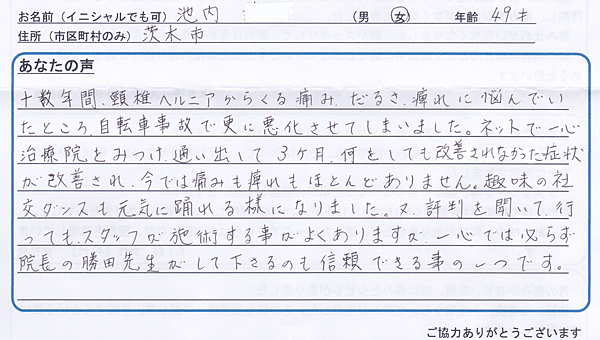 お名前（イニシャルでも可） 池内 （男 女） 年齢 49才
住所（市区町村のみ） 茨木市
あなたの声
十数年間、頸椎ヘルニアからくる痛み、だるさ、痺れに悩んでい
たところ、自転車事故で更に悪化させてしまいました。ネットで一心
治療院をみつけ、通い出して3ヶ月、何をしても改善されなかった症状
が改善され、今では痛みも痺れもほとんどありません。趣味の社
交ダンスも元気に踊れる様になりました。又、評判を聞いて、行
っても、スタッフが施術する事がよくありますが、一心では必らず
院長の勝田先生がして下さるのも信頼できる事の一つです。
ご協力ありがとうございます